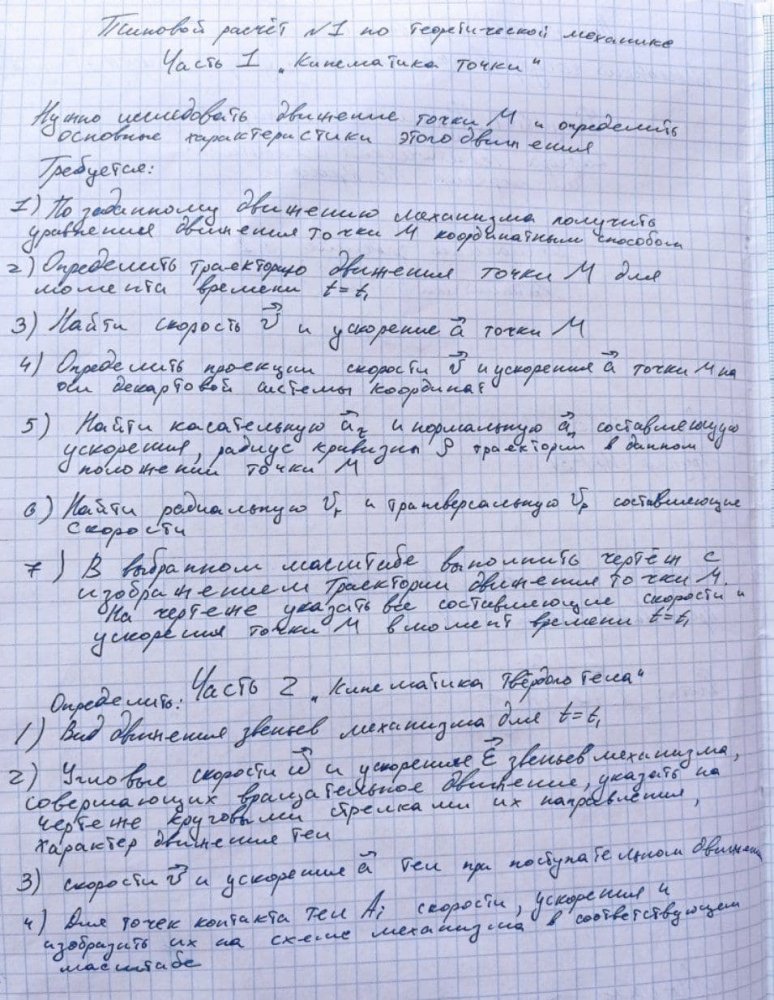 Типовой расчёт №1 по теоретической механике
Часть 1 „Кинематика точки“
Нужно исследовать движение точки M и определить
основные характеристики этого движения
Требуется:
1) По заданному движению механизма получить
уравнения движения точки M координатным способом
2) Определить траекторию движения точки M для
момента времени t=t₁
3) Найти скорость v⃗ и ускорение a⃗ точки M
4) Определить проекции скорости v⃗ и ускорения a⃗ точки M на
оси декартовой системы координат
5) Найти касательную a⃗τ и нормальную a⃗n составляющую
ускорения, радиус кривизны ρ траектории в данном
положении точки M
6) Найти радиальную vr и трансверсальную vp составляющие
скорости
7) В выбранном масштабе выполнить чертёж с
изображением траектории движения точки M.
На чертеже указать все составляющие скорости и
ускорения точки M в момент времени t=t₁
Часть 2 „Кинематика твёрдого тела“
Определить:
1) Вид движения звеньев механизма для t=t₁
2) Угловые скорости ω⃗ и ускорение ε⃗ звеньев механизма,
совершающих вращательное движение, указать на
чертеже круговыми стрелками их направления,
характер движения тел
3) скорости v⃗ и ускорение a⃗ тел при поступательном движении
4) Для точек контакта тел Ai скорости, ускорения и
изобразить их на схеме механизма в соответствующем
масштабе